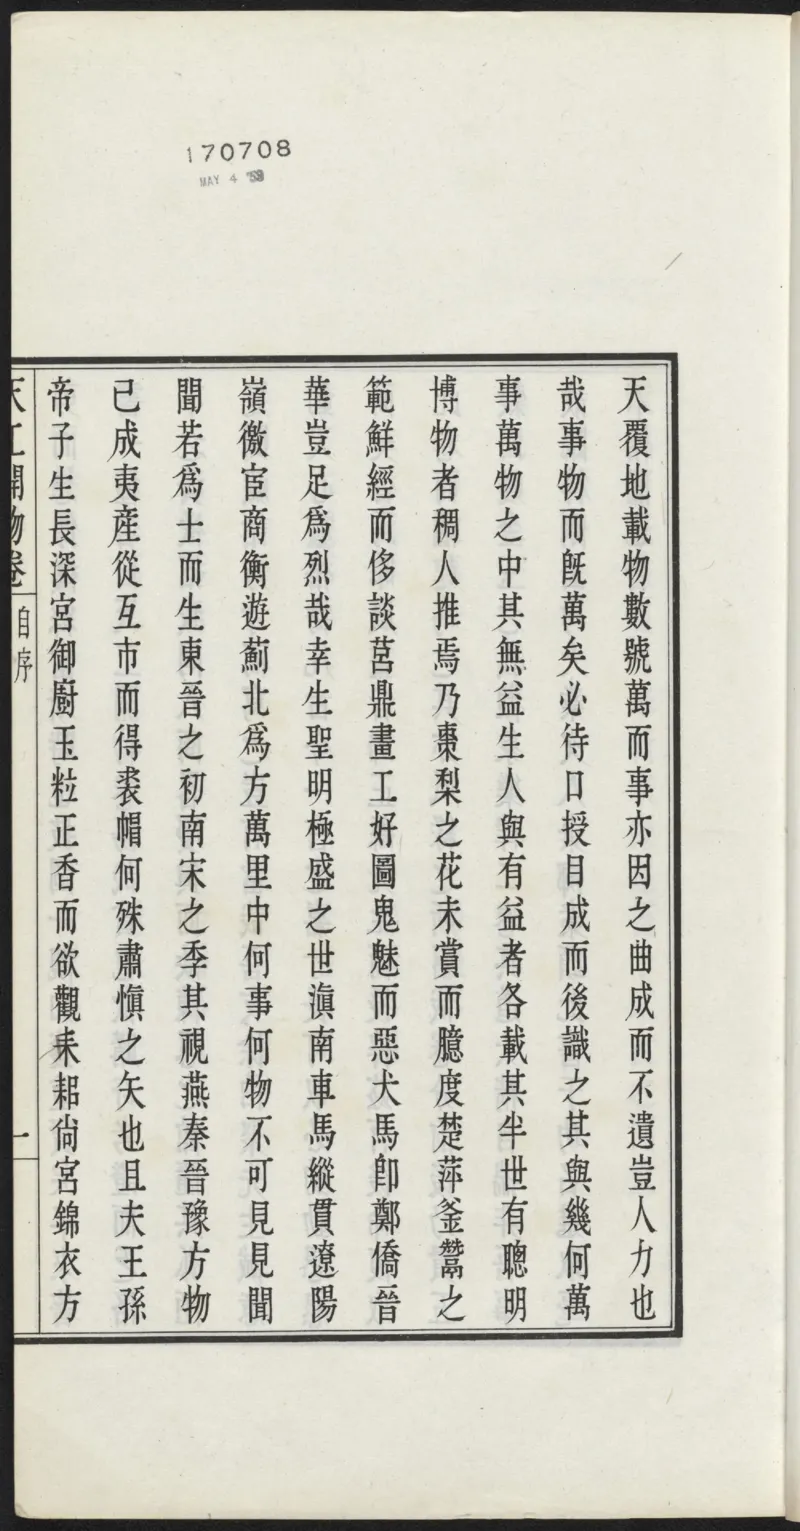 170708
MAY 4
天覆地載物數號萬而事亦因之曲成而不遺豈人力也
哉事物而旣萬矣必待口授目成而後識之其與幾何萬
事萬物之中其無益生人與有益者各載其半世有聰明
博物者稠人推焉乃棗梨之花未賞而臆度楚萍釜鬵之
範鮮經而侈談莒鼎畫工好圖鬼魅而惡犬馬卽鄭僑晉
華豈足爲烈哉幸生聖明極盛之世滇南車馬縱貫遼陽
嶺徼宦商衡遊薊北爲方萬里中何事何物不可見見聞
聞若爲士而生東晉之初南宋之季其視燕秦晉豫方物
已成夷產從互市而得裘帽何殊肅愼之矢也且夫王孫
帝子生長深宮御廚玉粒正香而欲觀耒耜尙宮錦衣方
天工開物卷
自序
一